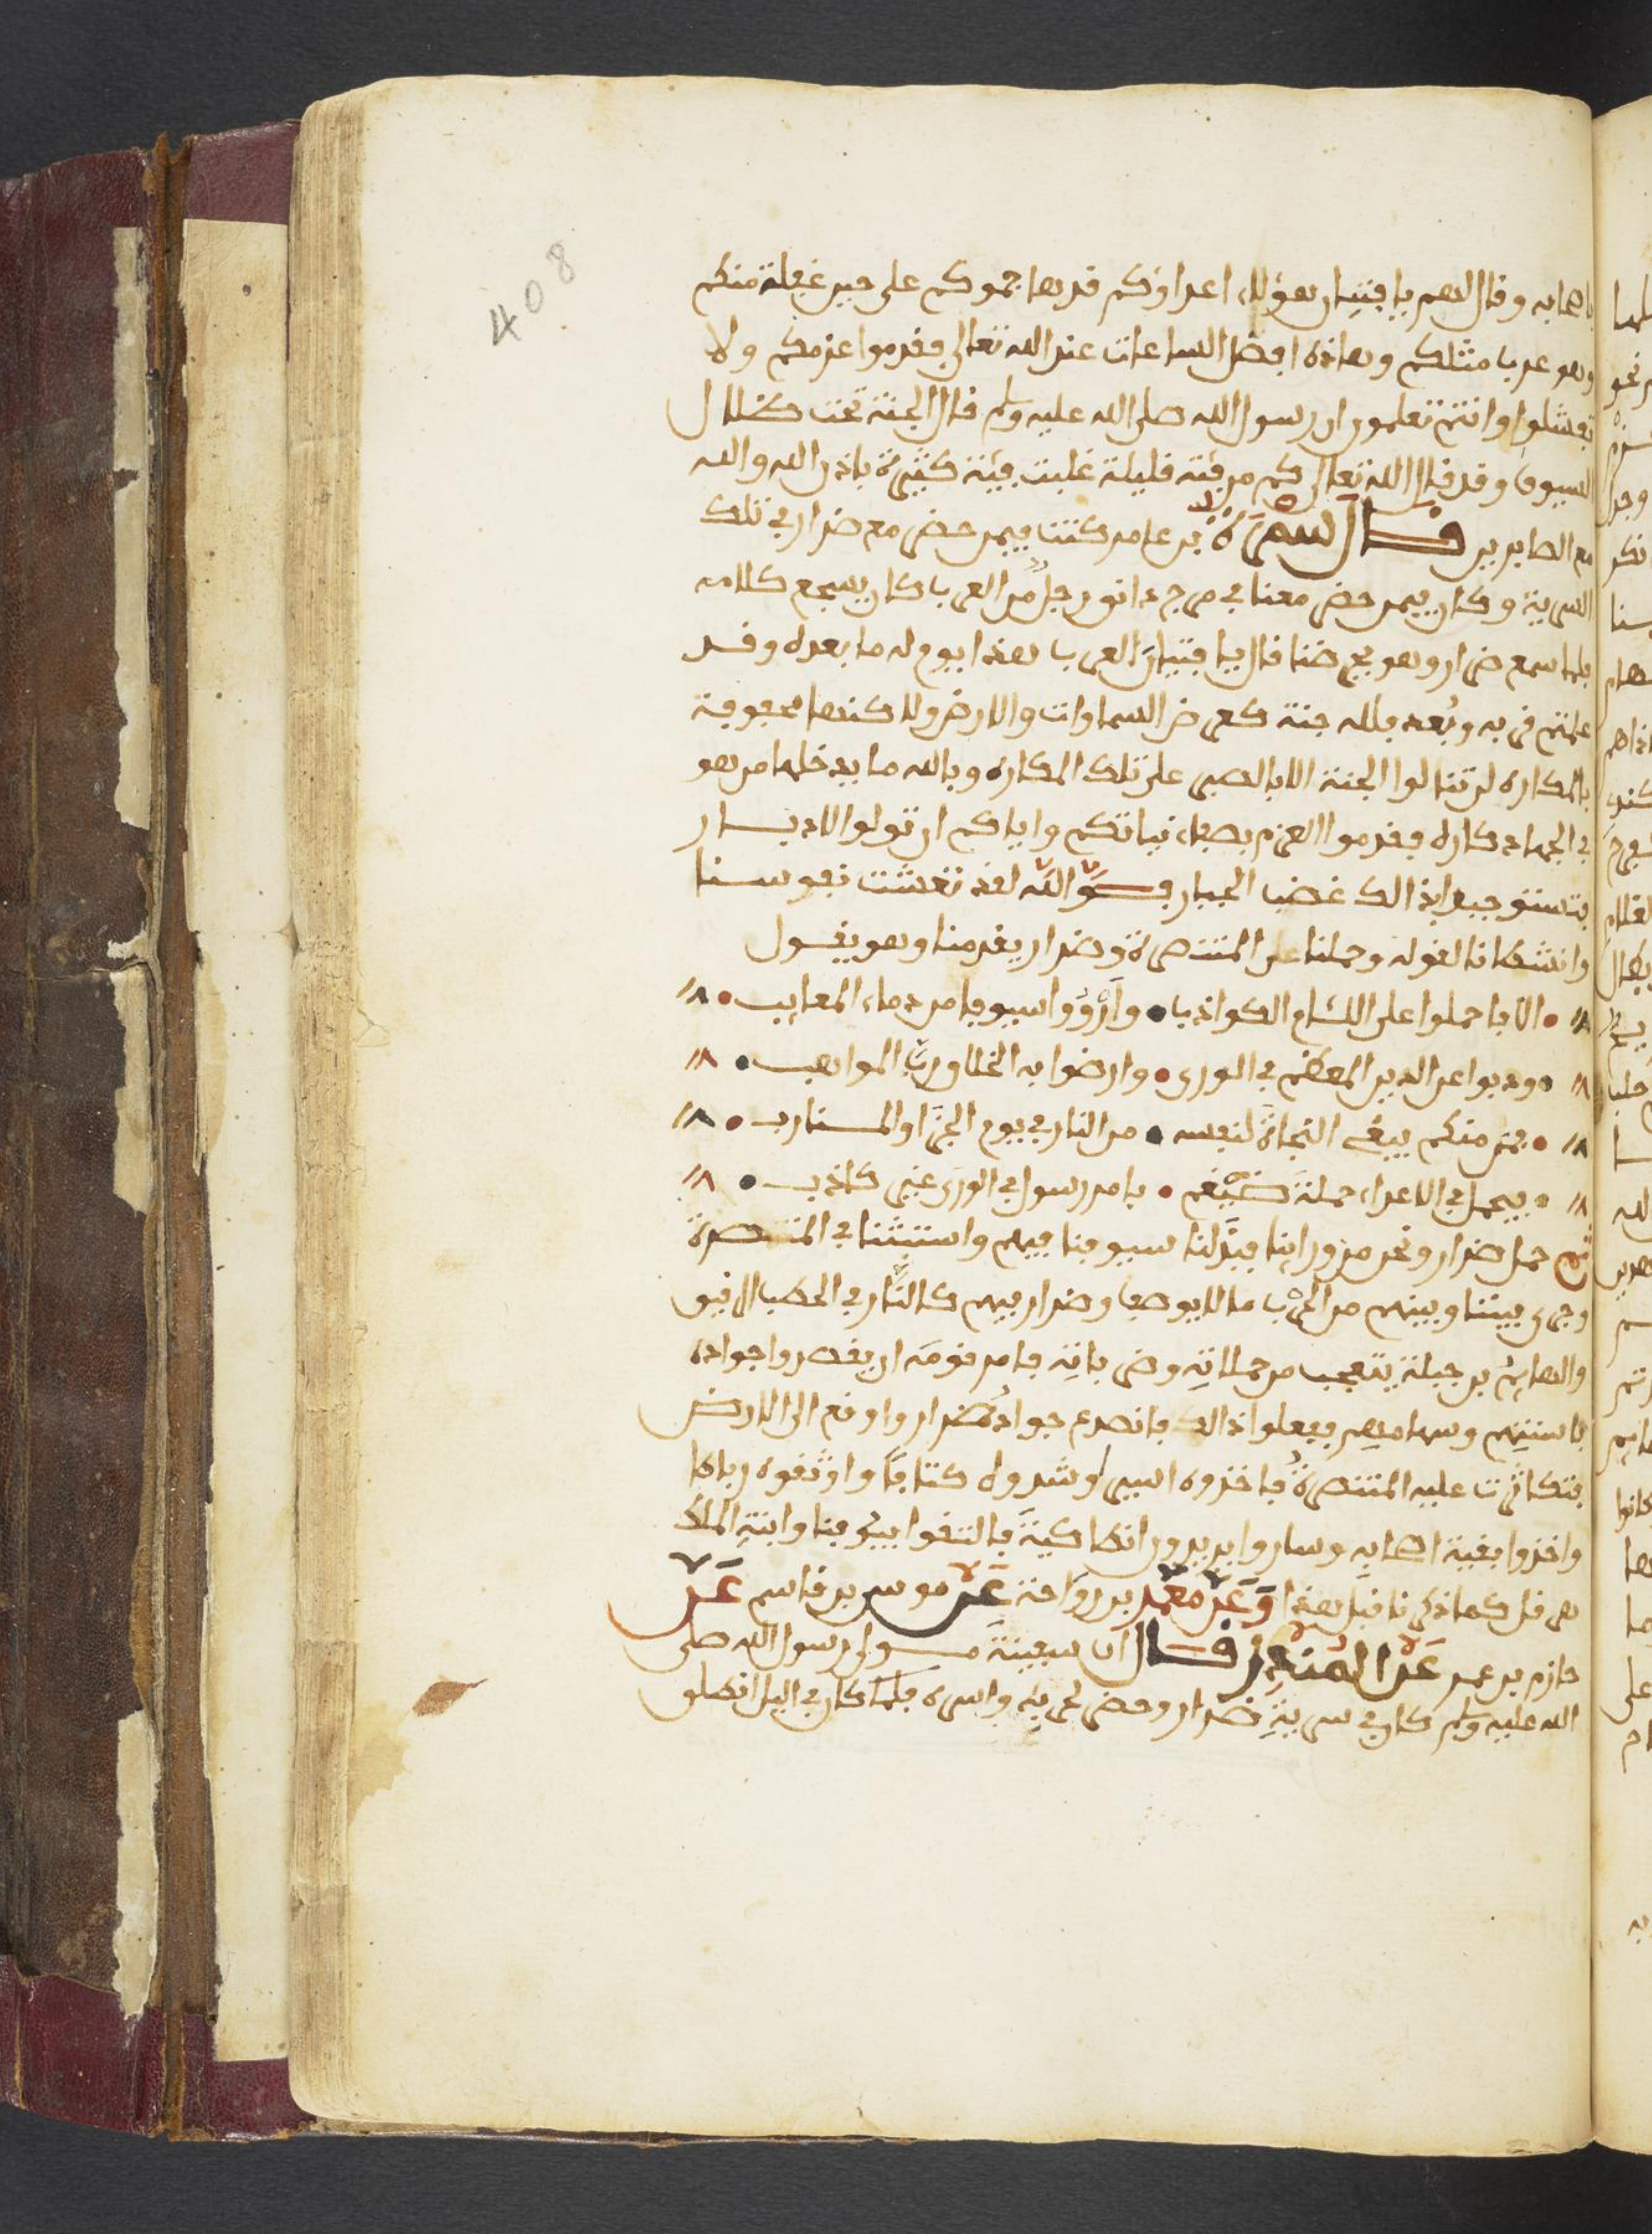 باصحابه وقال لهم يا فتيان هؤلاء اعداؤكم قد هاجموكم على حين غفلة منكم
وهو عرب مثلكم وهاذه افضل الساعات عند الله تعالى فقدموا عزمكم ولا
تفشلوا وانتم تعلمون ان رسول الله صلى الله عليه وسلم قال الجنة تحت ضلال
السيوف وقد قال الله تعالى كم من فئة قليلة غلبت فئة كثيرة باذن الله والله
مع الصابرين قال سمرة بن عامر كنت فيمن حضر مع ضرار في تلك
السرية وكان فيمن حضر معنا في مرج دابق رجل من العرب كان يسجع كلامه
فلما سمع ضرار وهو يحرضنا قال يا فتيان العرب هذا يوم له ما بعده وقد
علمتم قربه وبعده فلله جنة كعرض السماوات والارض ولاكنها محفوفة
بالمكاره لن تنالوا الجنة الا بالصبر على تلك المكاره وبالله ما يدخلها من هو
في الجهاد كاره فقدموا العزم بصفاء نياتكم واياكم ان تولوا الادبار
فتستوجبوا بذالك غضب الجبار فوالله لقد نعشت نفوسنا
وانشطنا لقوله وحملنا على المتنصرة وضرار يقدمنا وهو يقول
الا فاحملوا على اللئام الكواذب • وارووا سيوفا من دماء المعايب •
• وذبوا عن الدين المعظم في الورى • وارضوا به الخلاق رب المواهب •
• فمن منكم يبغى النجاة لنفسه • من النار في يوم الجزا والمـارب •
• فيحمل في الاعداء حملة ضيغم • بامر رسول في الورى غير كاذب •
ثم حمل ضرار ونحن من ورائنا فبذلنا سيوفنا فيهم واستبثنا في المتنصرة
وجرى بيننا وبينهم من الحرب ما لا يوصف وضرار فيهم كالنار في الحطب الرقيق
والهايم بن جبلة يتعجب من حملاته وضرباته فامر قومه ان يقصدوا جواده
باسنتهم وسهامهم ففعلوا ذالك فانصرع جواد ضرار واوقع الى الارض
فتكاثرت عليه المتنصرة فاخذوه اسيرا وشدوه كتافا واوثقوه رباطا
واخذوا بقية اصحابه وساروا يريدون انطاكية فالتقوا بيوقنا وابنة الملك
هرقل كما ذكرنا قبل هذا وعن معمر بن رواحة عن موسى بن قاسم عن
حازم بن عمر عن المنذر قال ان سفينة مولى رسول الله صلى
الله عليه وسلم كان في سرية ضرار وحضر حربه واسره فلما كان في اليل انطلق
408